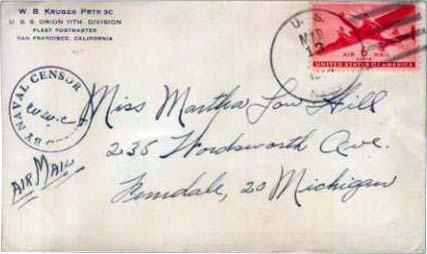 W. B. KRUGER PRTR 3C
U. S. S. ORION 11TH. DIVISION
FLEET POSTMASTER
SAN FRANCISCO, CALIFORNIA
U. S.
MAR
12
AIR 6 MAIL
CENTS
UNITED STATES OF AMERICA
BY NAVAL CENSOR
w.w.c
AIR MAIL
Miss Martha Lou Hill
235 Wordsworth Ave.
Ferndale, 20 Michigan